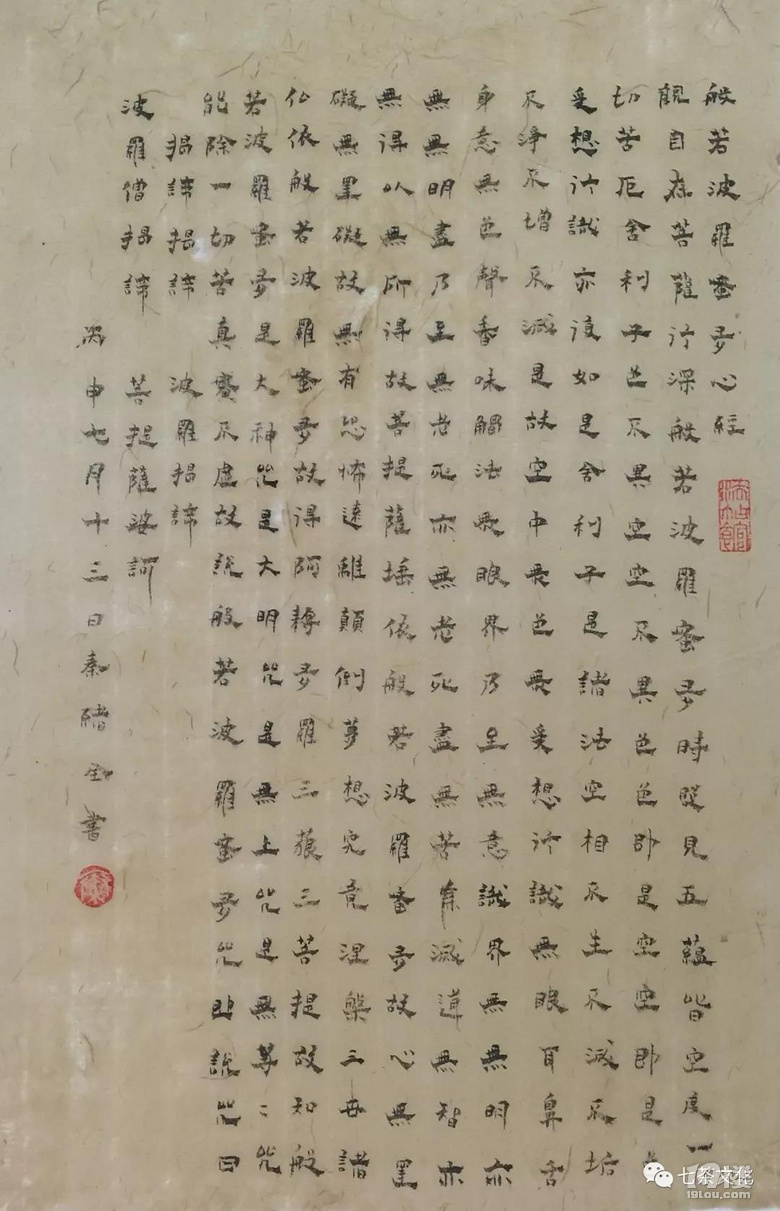 般若波羅蜜多心經
觀自在菩薩行深般若波羅蜜多時照見五蘊皆空度一
切苦厄舍利子色不異空空不異色色即是空空即是
受想行識亦復如是舍利子是諸法空相不生不滅不垢
不淨不增不減是故空中無色無受想行識無眼耳鼻舌
身意無色聲香味觸法無眼界乃至無意識界無無明亦
無無明盡乃至無老死亦無老死盡無苦集滅道無智亦
無得以無所得故菩提薩埵依般若波羅蜜多故心無罣
礙無罣礙故無有恐怖遠離顛倒夢想究竟涅槃三世諸
仏依般若波羅蜜多故得阿耨多羅三藐三菩提故知般
若波羅蜜多是大神咒是大明咒是無上咒是無等〻咒
能除一切苦真實不虛故說般若波羅蜜多咒即說咒曰
揭諦揭諦 波羅揭諦
波羅僧揭諦 菩提薩婆訶
丙申七月十三日秦書
七茶文化
19楼
19lou.com